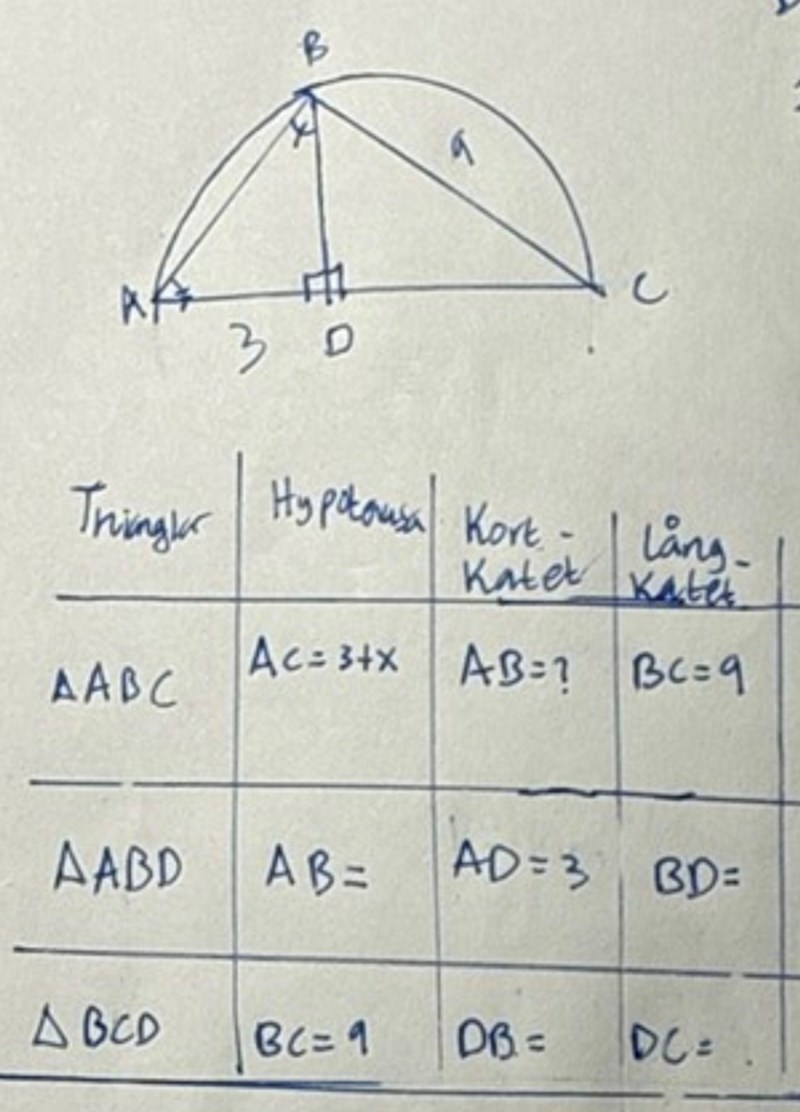 B
x
9
A
C
3
D
Hypotenusa
Kort-
Katet
Lång-
Katet
ΔABC
AC=3+x
AB=?
BC=9
ΔABD
AB=
AD=3
BD=
ΔBCD
BC=9
DB=
DC=